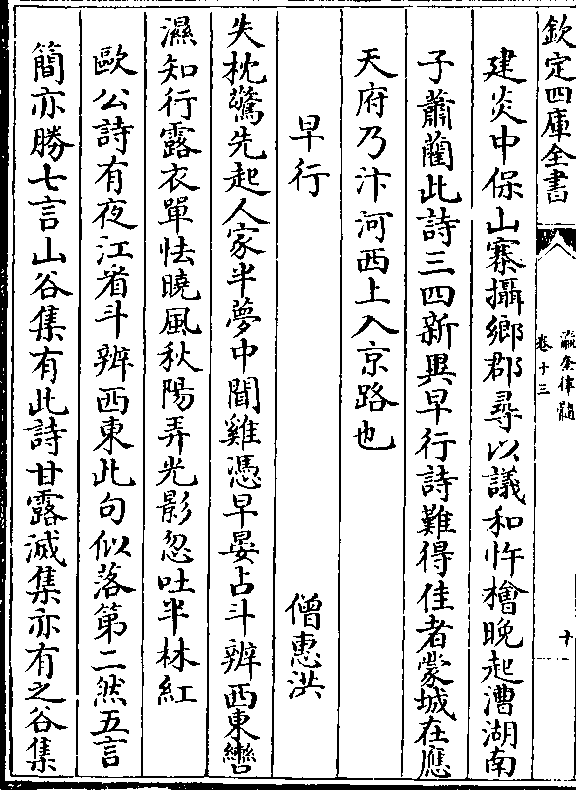 欽定四庫全書
瀛奎律髓
卷十三
十
建炎中保山寨攝鄉郡尋以議和忤檜晚起漕湖南
子蕭𦺇此詩三四新異早行詩難得佳者蒙城在應
天府乃汴河西上入京路也
早行
僧惠洪
失枕驚先起人家半夢中聞雞憑早晏占斗辨西東轡
濕知行露衣單怯曉風秋陽弄光影忽吐半林紅
歐公詩有夜江看斗辨西東此句似落第二然五言
簡亦勝七言山谷集有此詩甘露滅集亦有之谷集